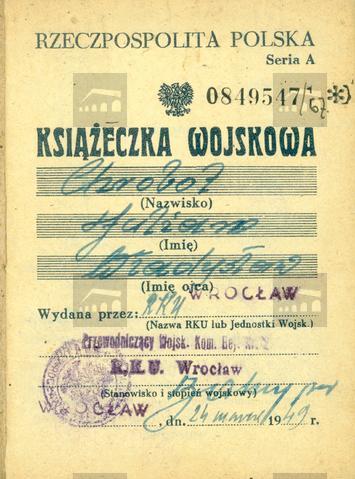 RZECZPOSPOLITA POLSKA
Seria A
0849547/67 *)
KSIĄŻECZKA WOJSKOWA
Chrobot
(Nazwisko)
Julian
(Imię)
Władysław
(Imię ojca)
WROCŁAW
Wydana przez: RKU
(Nazwa RKU lub Jednostki Wojsk.)
Przewodniczący Wojsk. Kom. Rej.
R.K.U. Wrocław
(Stanowisko i stopień wojskowy)
OCŁAW, dn. 24 marca 1949 r.